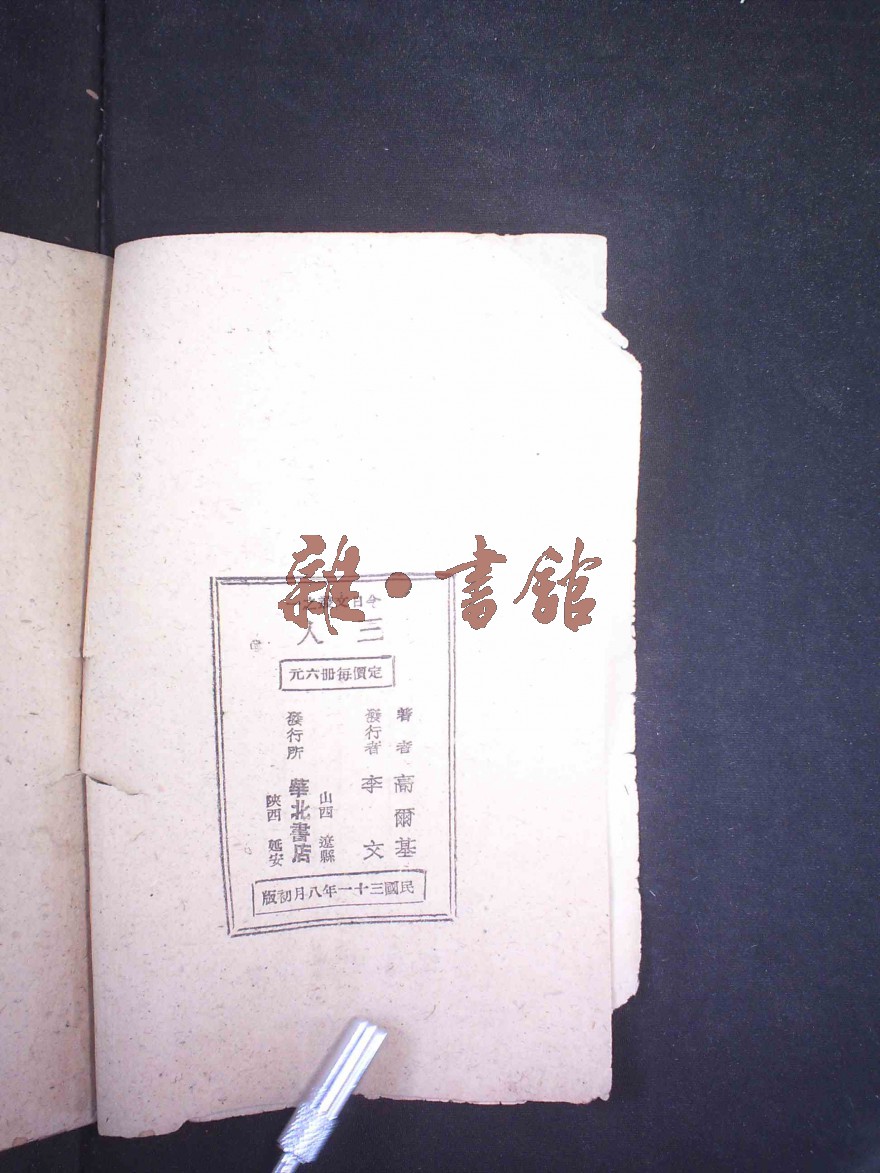 雜·書館
今日文藝之一
三人
定價每册六元
著者 高爾基
發行者 李文
發行所 華北書店
山西 遼縣
陝西 延安
民國三十一年八月初版